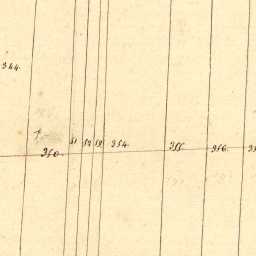 344.
350. 51 52 53 354. 355. 356.